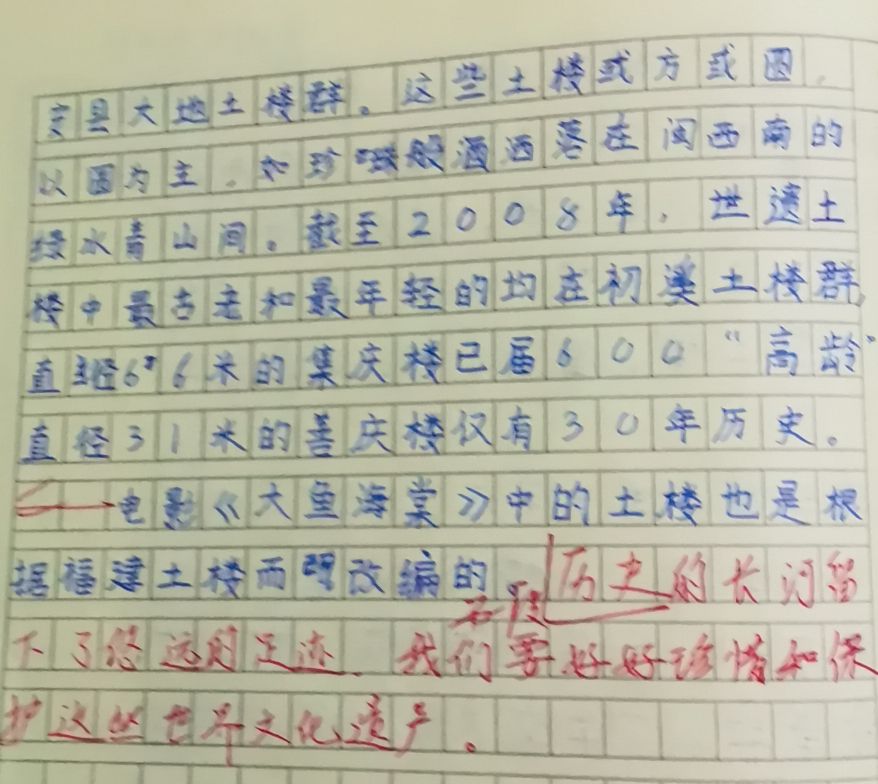 安县大地土楼群。这些土楼或方或圆，
以圆为主，如珍珠般洒洒落在闽西南的
绿水青山间。截至2008年，世遗土
楼中最古老和最年轻的均在初溪土楼群，
直径66米的集庆楼已届600“高龄”
直径31米的善庆楼仅有30年历史。
电影《大鱼海棠》中的土楼也是根
据福建土楼而改编的 历史的长河留
另段
下了悠远的足迹，我们要好好珍惜和保
护这些世界文化遗产。